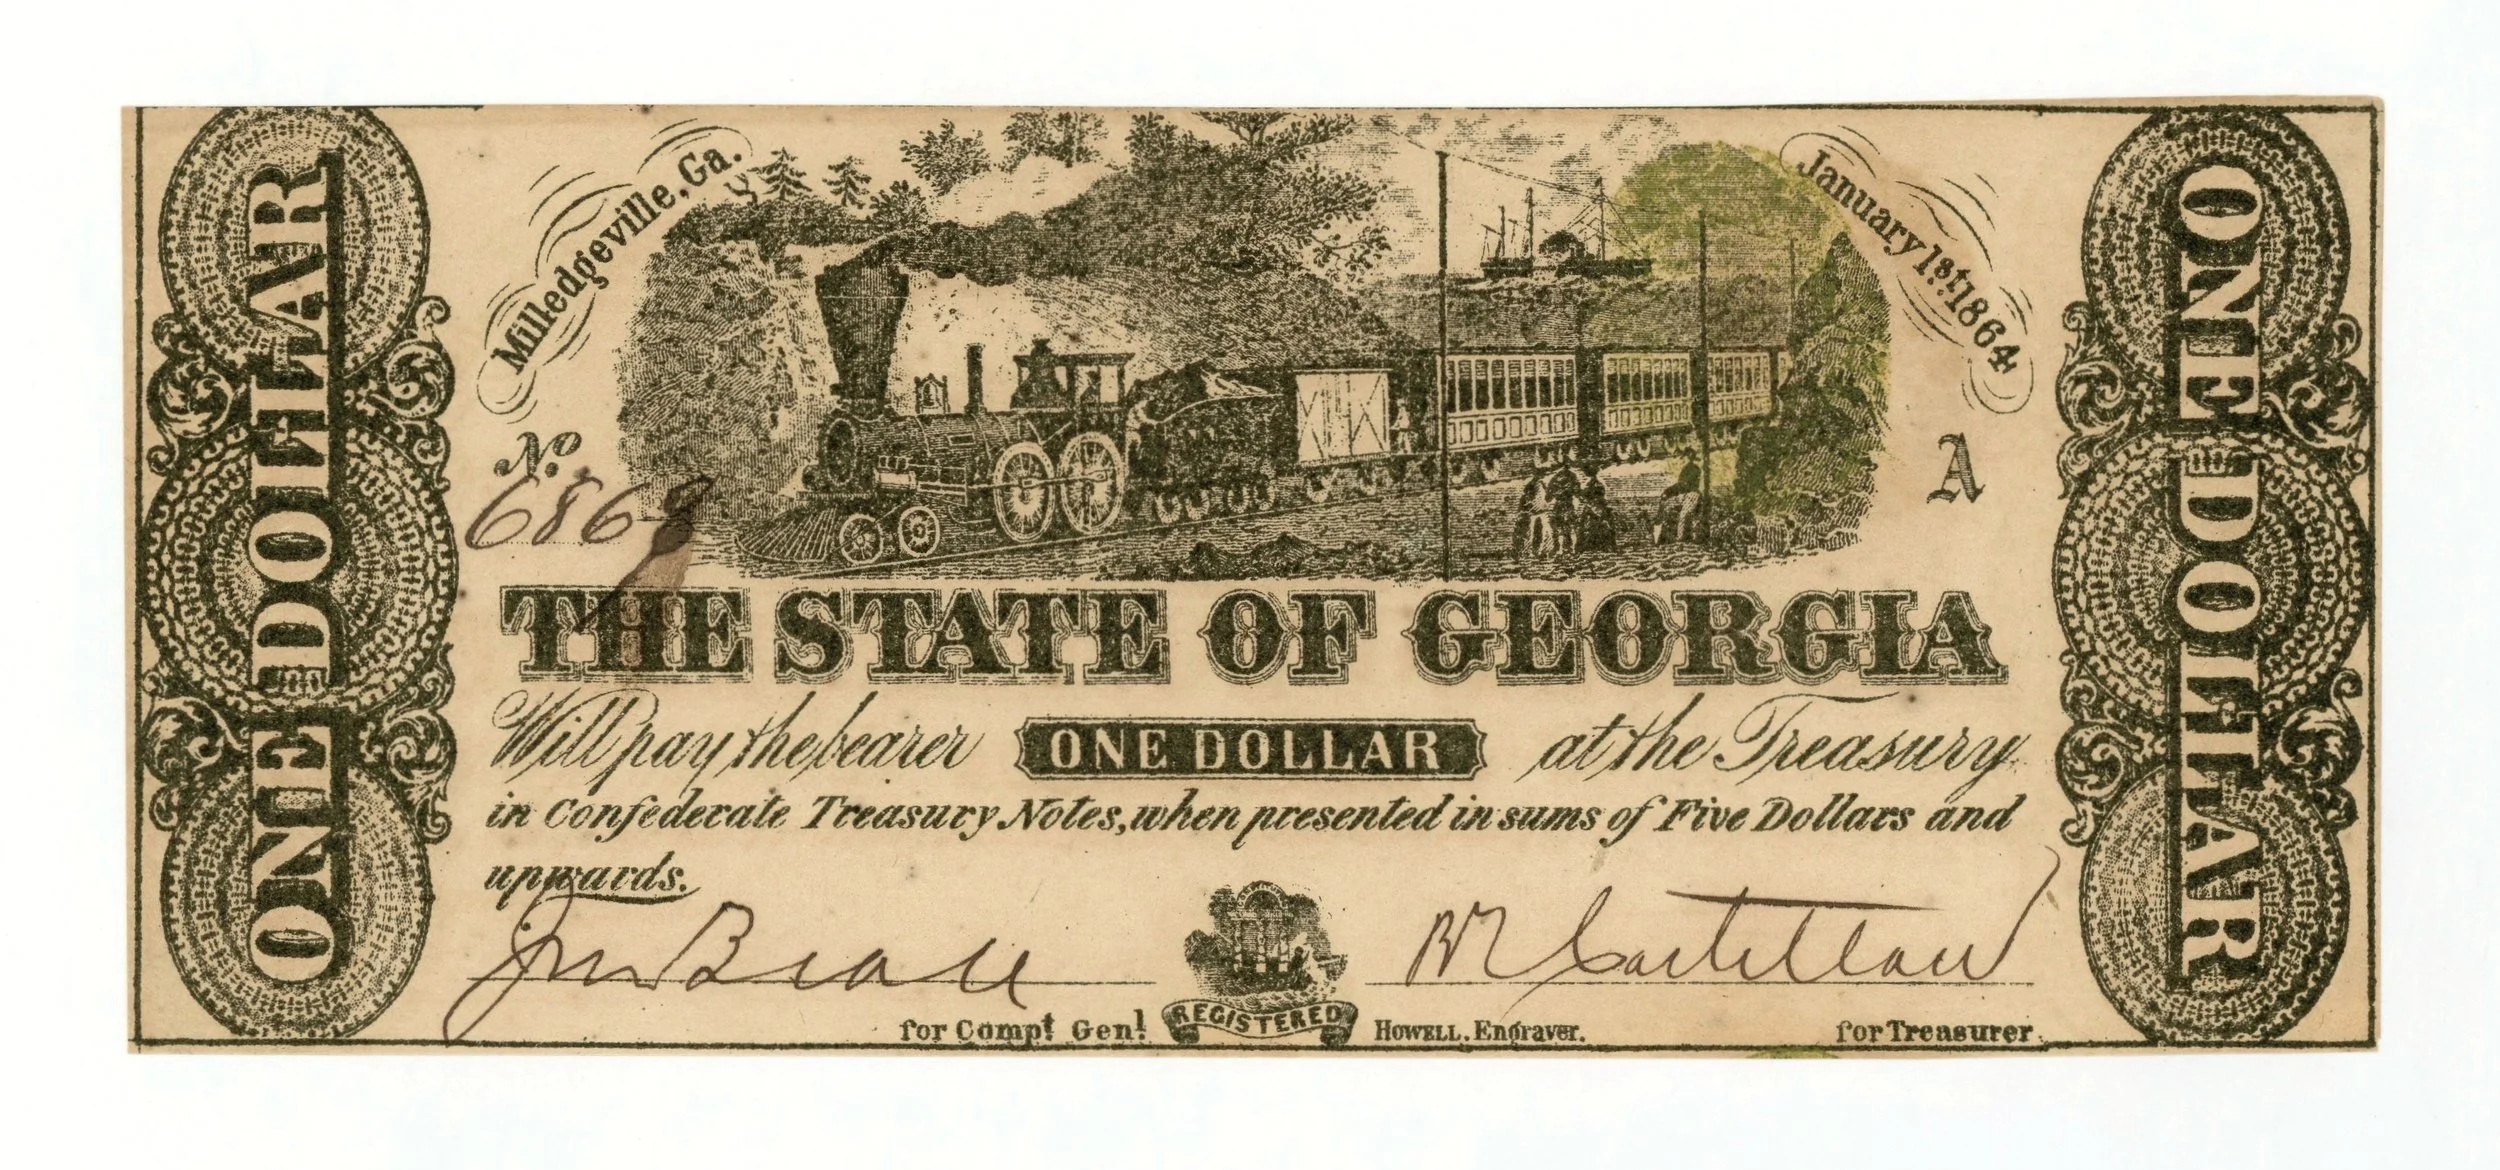 Milledgeville, Ga.
January 1st. 1864
ONE DOLLAR
ONE DOLLAR
No.
6869
A
THE STATE OF GEORGIA
Will pay the bearer ONE DOLLAR at the Treasury
in Confederate Treasury Notes, when presented in sums of Five Dollars and
upwards.
for Compt Genl
REGISTERED
HOWELL, Engraver.
for Treasurer